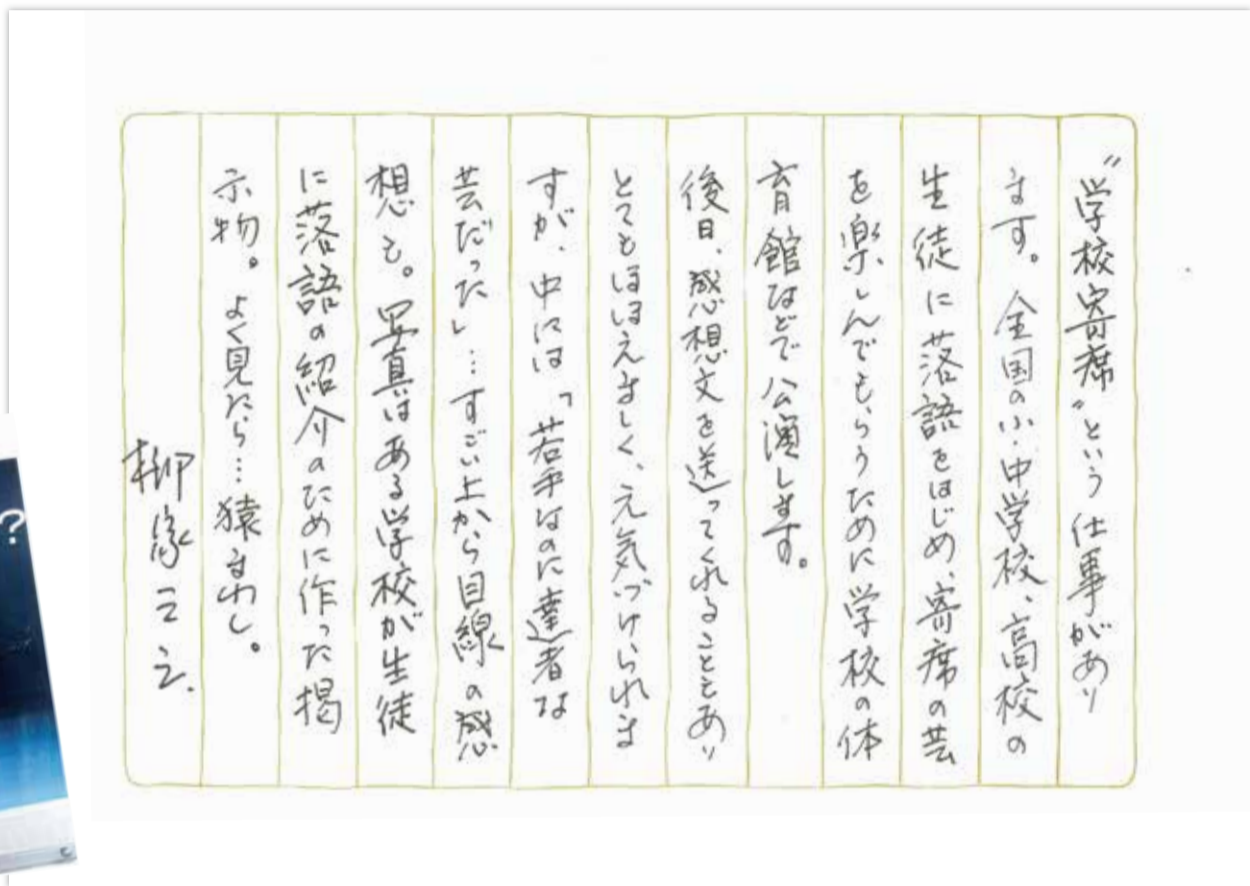 "学校寄席"という仕事があり
ます。全国の小・中学校、高校の
生徒に落語をはじめ、寄席の芸
を楽しんでもらうために学校の体
育館などで公演します。
後日、感想文を送ってくれることもあり
とてもほほえましく、元気づけられま
すが、中には「若手なのに達者な
芸だった」…すごい上から目線の感
想も。写真はある学校が生徒
に落語の紹介のために作った掲
示物。よく見たら…猿まわし。
柳家三三.
?